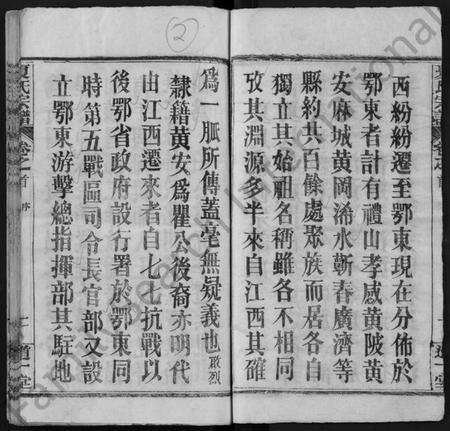 西紛紛遷至鄂東現在分佈於
鄂東者計有禮山孝感黃陂黃
安麻城黃岡浠水蘄春廣濟等
縣約共百餘處聚族而居各自
獨立其始祖名稱雖各不相同
攷其淵源多半來自江西其確
道一堂
②
夏氏宗譜
卷之首
為一脈所傳蓋毫無疑義也啟烈
隸籍黃安為瞿公後裔亦明代
由江西遷來者自七七抗戰以
後鄂省政府設行署於鄂東同
時第五戰區司令長官部又設
立鄂東游擊總指揮部其駐地
道一堂